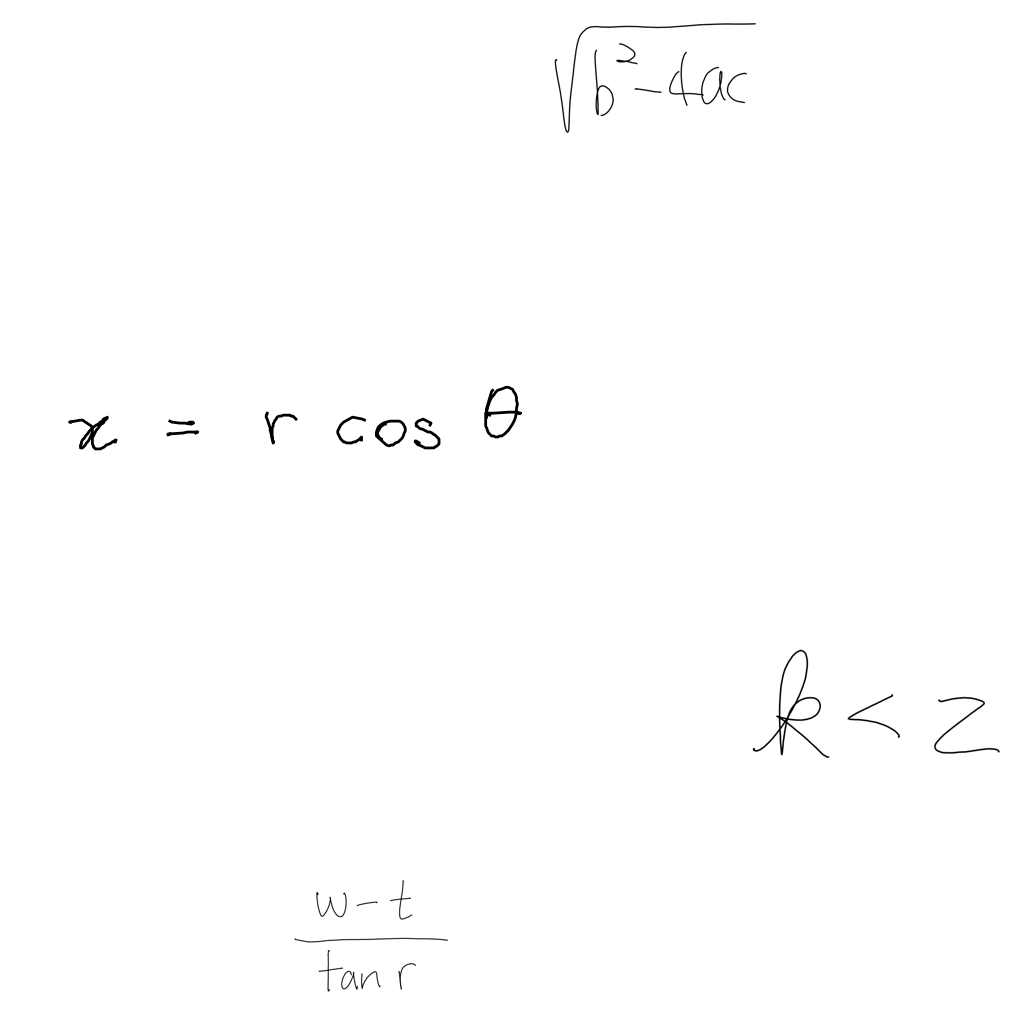 √(b² - 4ac)
x = r cos θ
k < z
w - t
tan r